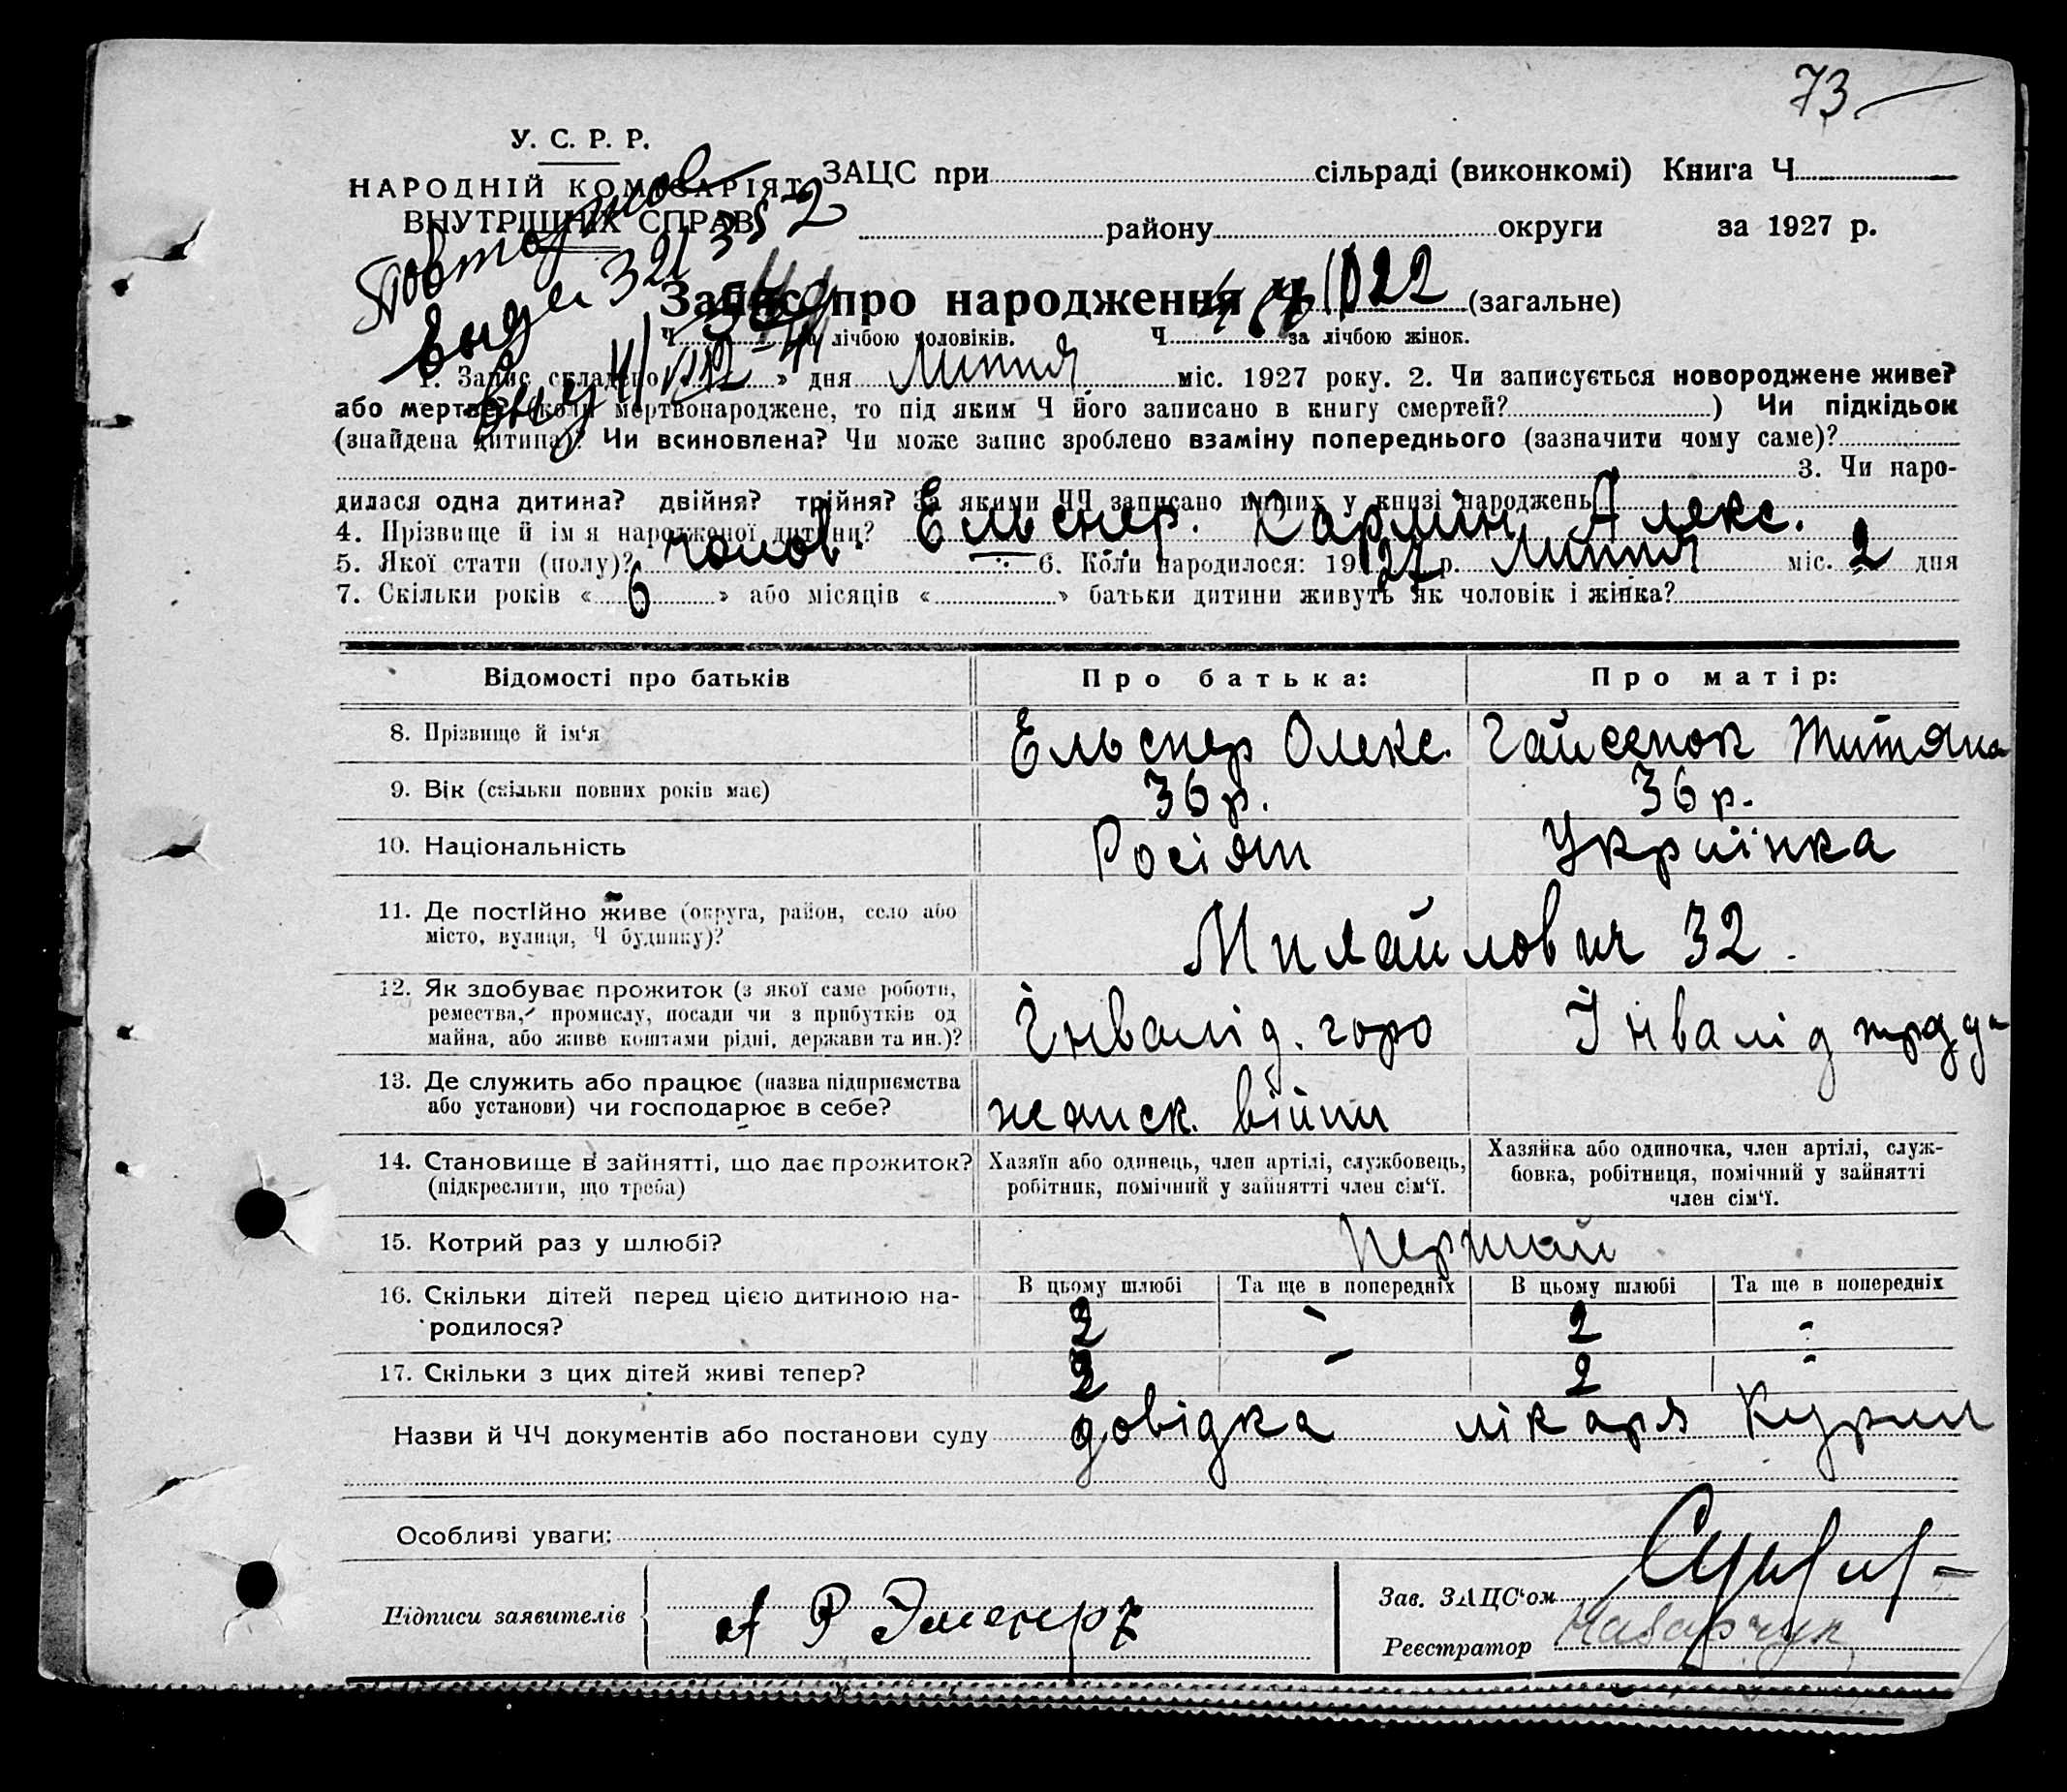 73
У. С. Р. Р.
НАРОДНІЙ КОМІСАРІЯТ
ВНУТРІШНІХ СПРАВ
ЗАЦС при сільраді (виконкомі) Книга Ч
району округи за 1927 р.
321352
Запис про народження Ч 1022 (загальне)
Ч за лічбою чоловіків. Ч за лічбою жінок.
1. Запис складено « » дня Липня міс. 1927 року. 2. Чи записується новороджене живе?
або мертве? (коли мертвонароджене, то під яким Ч його записано в книгу смертей? ) Чи підкідьок
(знайдена дитина)? Чи всиновлена? Чи може запис зроблено взаміну попереднього (зазначити чому саме)?
3. Чи наро-
дилася одна дитина? двійня? трійня? За якими ЧЧ записано инших у книзі народжень
4. Прізвище й ім я народженої дитини? Ельснер. Кармін Алекс.
5. Якої стати (полу)? чолов. 6. Коли народилося: 1927 р. Липня міс. 2 дня
7. Скільки років « 6 » або місяців « » батьки дитини живуть як чоловік і жінка?
Відомості про батьків Про батька: Про матір:
8. Прізвище й ім‘я Ельснер Олекс. Гайсенок Титяна
9. Вік (скільки повних років має) 36 р. 36 р.
10. Національність Росіян Українка
11. Де постійно живе (округа, район, село або
місто, вулиця, Ч будинку)? Михайлович 32.
12. Як здобуває прожиток (з якої саме роботи,
ремества, промислу, посади чи з прибутків од
майна, або живе коштами рідні, держави та ин.)? Інвалід. горо Інвалід труда
13. Де служить або працює (назва підприємства
або установи) чи господарює в себе? жанск. війни
14. Становище в зайнятті, що дає прожиток?
(підкреслити, що треба)
Хазяїн або одинець, член артілі, службовець,
робітник, помічний у зайнятті член сім‘ї.
Хазяйка або одиночка, член артілі, служ-
бовка, робітниця, помічний у зайнятті
член сім‘ї.
15. Котрий раз у шлюбі? перший
16. Скільки дітей перед цією дитиною на-
родилося?
В цьому шлюбі Та ще в попередніх В цьому шлюбі Та ще в попередніх
2 - 2 -
17. Скільки з цих дітей живі тепер? 2 - 2 -
Назви й ЧЧ документів або постанови суду довідка лікаря
Особливі уваги:
Підписи заявителів
Зав. ЗАЦС‘ом
Реєстратор